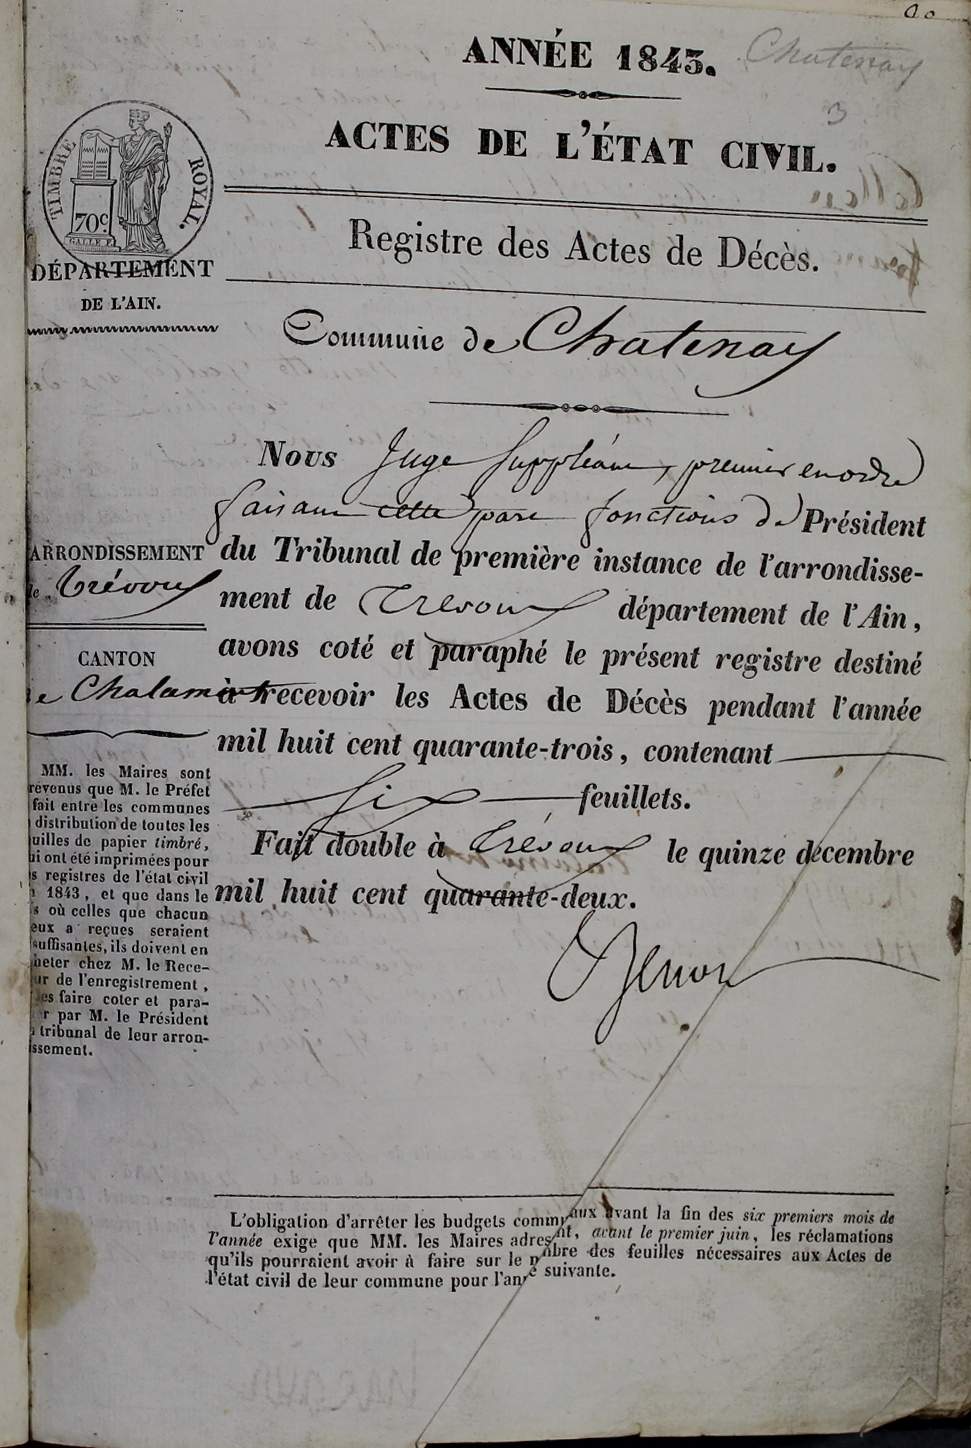 ANNÉE 1843.
Chatenay
3
ACTES DE L'ÉTAT CIVIL.
TIMBRE ROYAL.
70c
GALLE F.
Registre des Actes de Décès.
DÉPARTEMENT
DE L'AIN.
Commune de Chatenay
Nous Juge Suppléant, premier en ordre
faisant cette part fonctions de Président
du Tribunal de première instance de l'arrondisse-
ment de Trévoux département de l'Ain,
avons coté et paraphé le présent registre destiné
à recevoir les Actes de Décès pendant l'année
mil huit cent quarante-trois, contenant
Six feuillets.
Fait double à Trévoux le quinze décembre
mil huit cent quarante-deux.
ARRONDISSEMENT
de Trévoux
CANTON
de Chalamont
MM. les Maires sont
revenus que M. le Préfet
fait entre les communes
distribution de toutes les
uilles de papier timbré,
ui ont été imprimées pour
s registres de l'état civil
1843, et que dans le
s où celles que chacun
eux a reçues seraient
suffisantes, ils doivent en
heter chez M. le Rece-
ur de l'enregistrement,
es faire coter et para-
r par M. le Président
tribunal de leur arron-
ssement.
L'obligation d'arrêter les budgets commuaux avant la fin des six premiers mois de
l'année exige que MM. les Maires adresnt, avant le premier juin, les réclamations
qu'ils pourraient avoir à faire sur le nmbre des feuilles nécessaires aux Actes de
l'état civil de leur commune pour l'anne suivante.